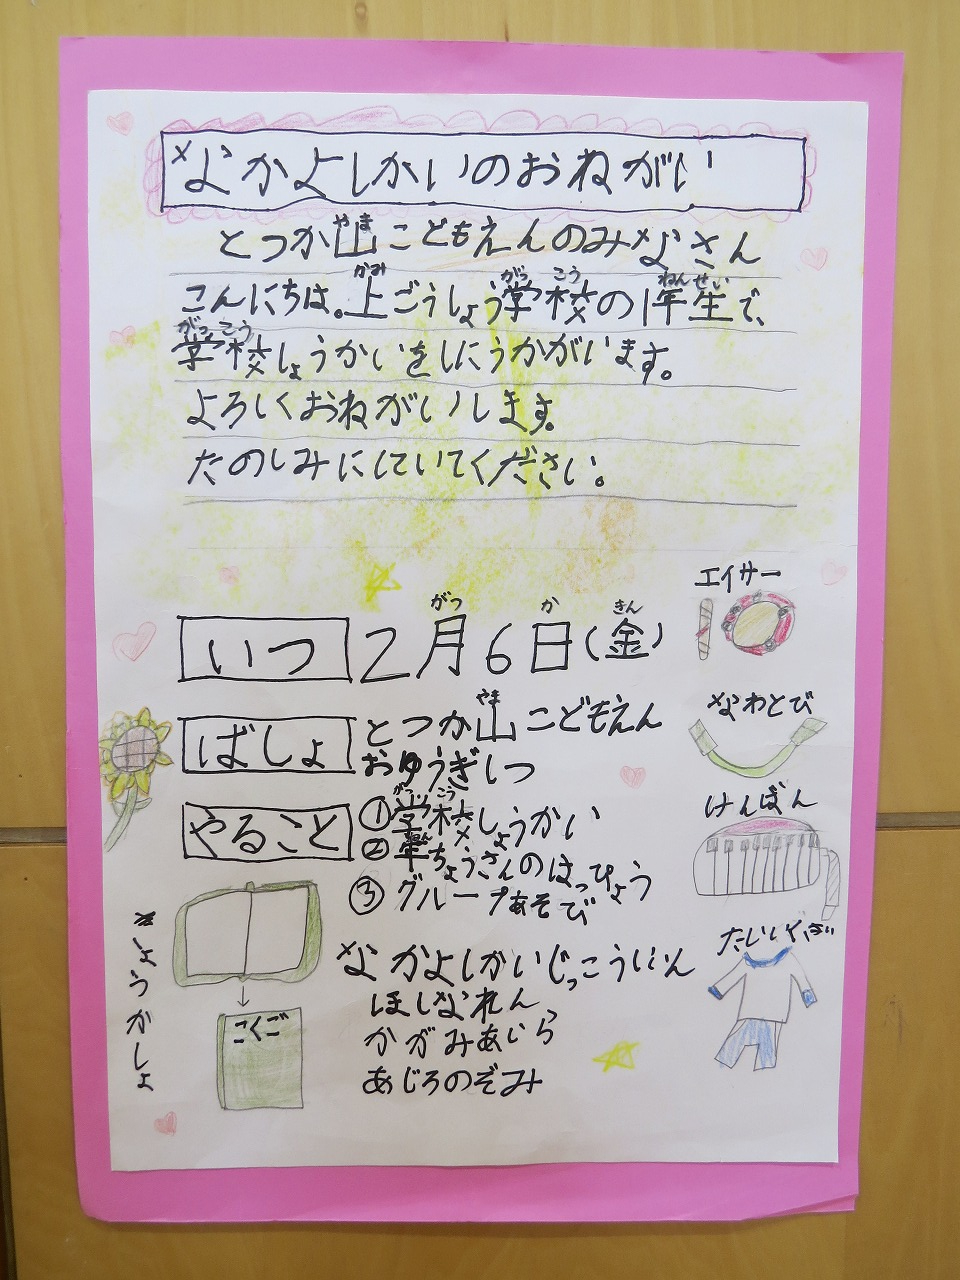 なかよしかいのおねがい
とつか山こどもえんのみなさん
こんにちは。上ごうしょう学校の1年生で、
学校しょうかいをしにうかがいます。
よろしくおねがいします。
たのしみにしていてください。
いつ 2月6日(金)
ばしょ とつか山こどもえん
おゆうぎしつ
やること ①学校しょうかい
②年ちょうさんのはっぴょう
③グループあそび
なかよしかいじっこういいん
ほしなれん
かがみあいら
あじろのぞみ
エイサー
なわとび
けんばん
たいいくぎ
きょうかしょ
こくご